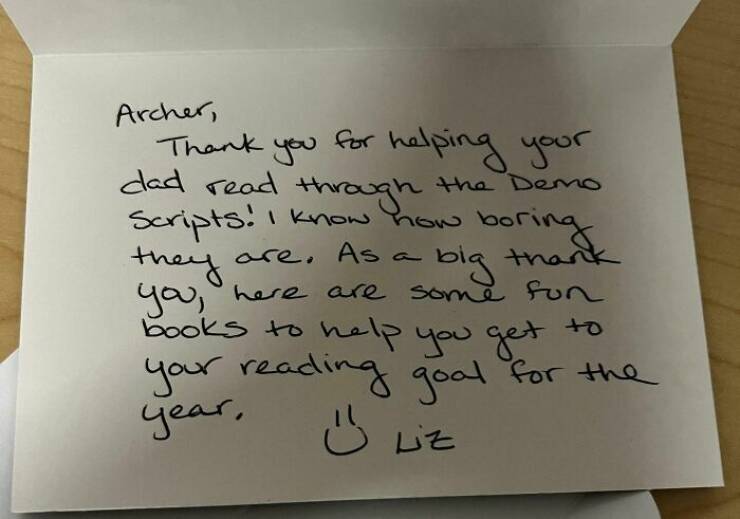 Archer,
Thank you for helping your
dad read through the Demo
Scripts! I know how boring
they are. As a big thank
you, here are some fun
books to help you get to
your reading goal for the
year.
Liz